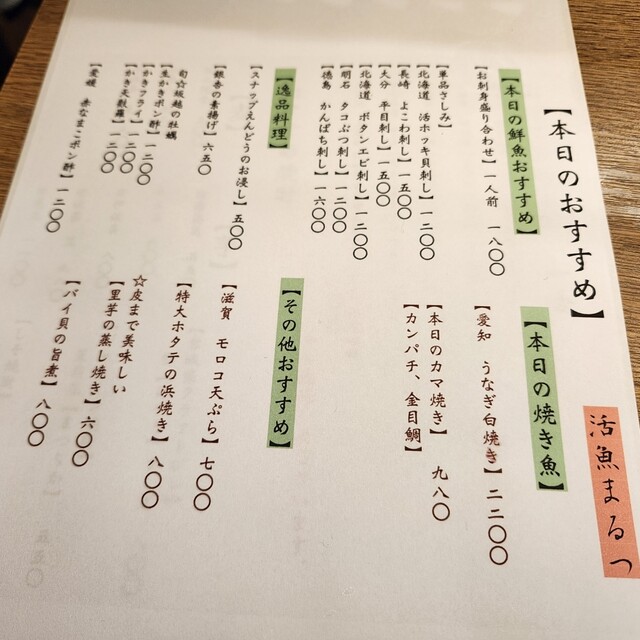 【本日のおすすめ】
活魚まるつ
【本日の鮮魚おすすめ】
【お刺身盛り合わせ】一人前 一八〇〇
【単品さしみ】
【北海道 活ホッキ貝刺し】一二〇〇
【長崎 よこわ刺し】一五〇〇
【大分 平目刺し】一五〇〇
【北海道 ボタンエビ刺し】一二〇〇
【明石 タコぶつ刺し】一二〇〇
【徳島 かんぱち刺し】一六〇〇
【逸品料理】
【スナップえんどうのお浸し】五〇〇
【銀杏の素揚げ】六五〇
旬☆坂越の牡蠣
【生かきポン酢】一二〇〇
【かきフライ】一二〇〇
【かき天麩羅】一二〇〇
【愛媛 赤なまこポン酢】一二〇〇
【本日の焼き魚】
【愛知 うなぎ白焼き】二二〇〇
【本日のカマ焼き】 九八〇
【カンパチ、金目鯛】
【その他おすすめ】
【滋賀 モロコ天ぷら】七〇〇
【特大ホタテの浜焼き】八〇〇
☆皮まで美味しい
【里芋の蒸し焼き】六〇〇
【バイ貝の旨煮】八〇〇